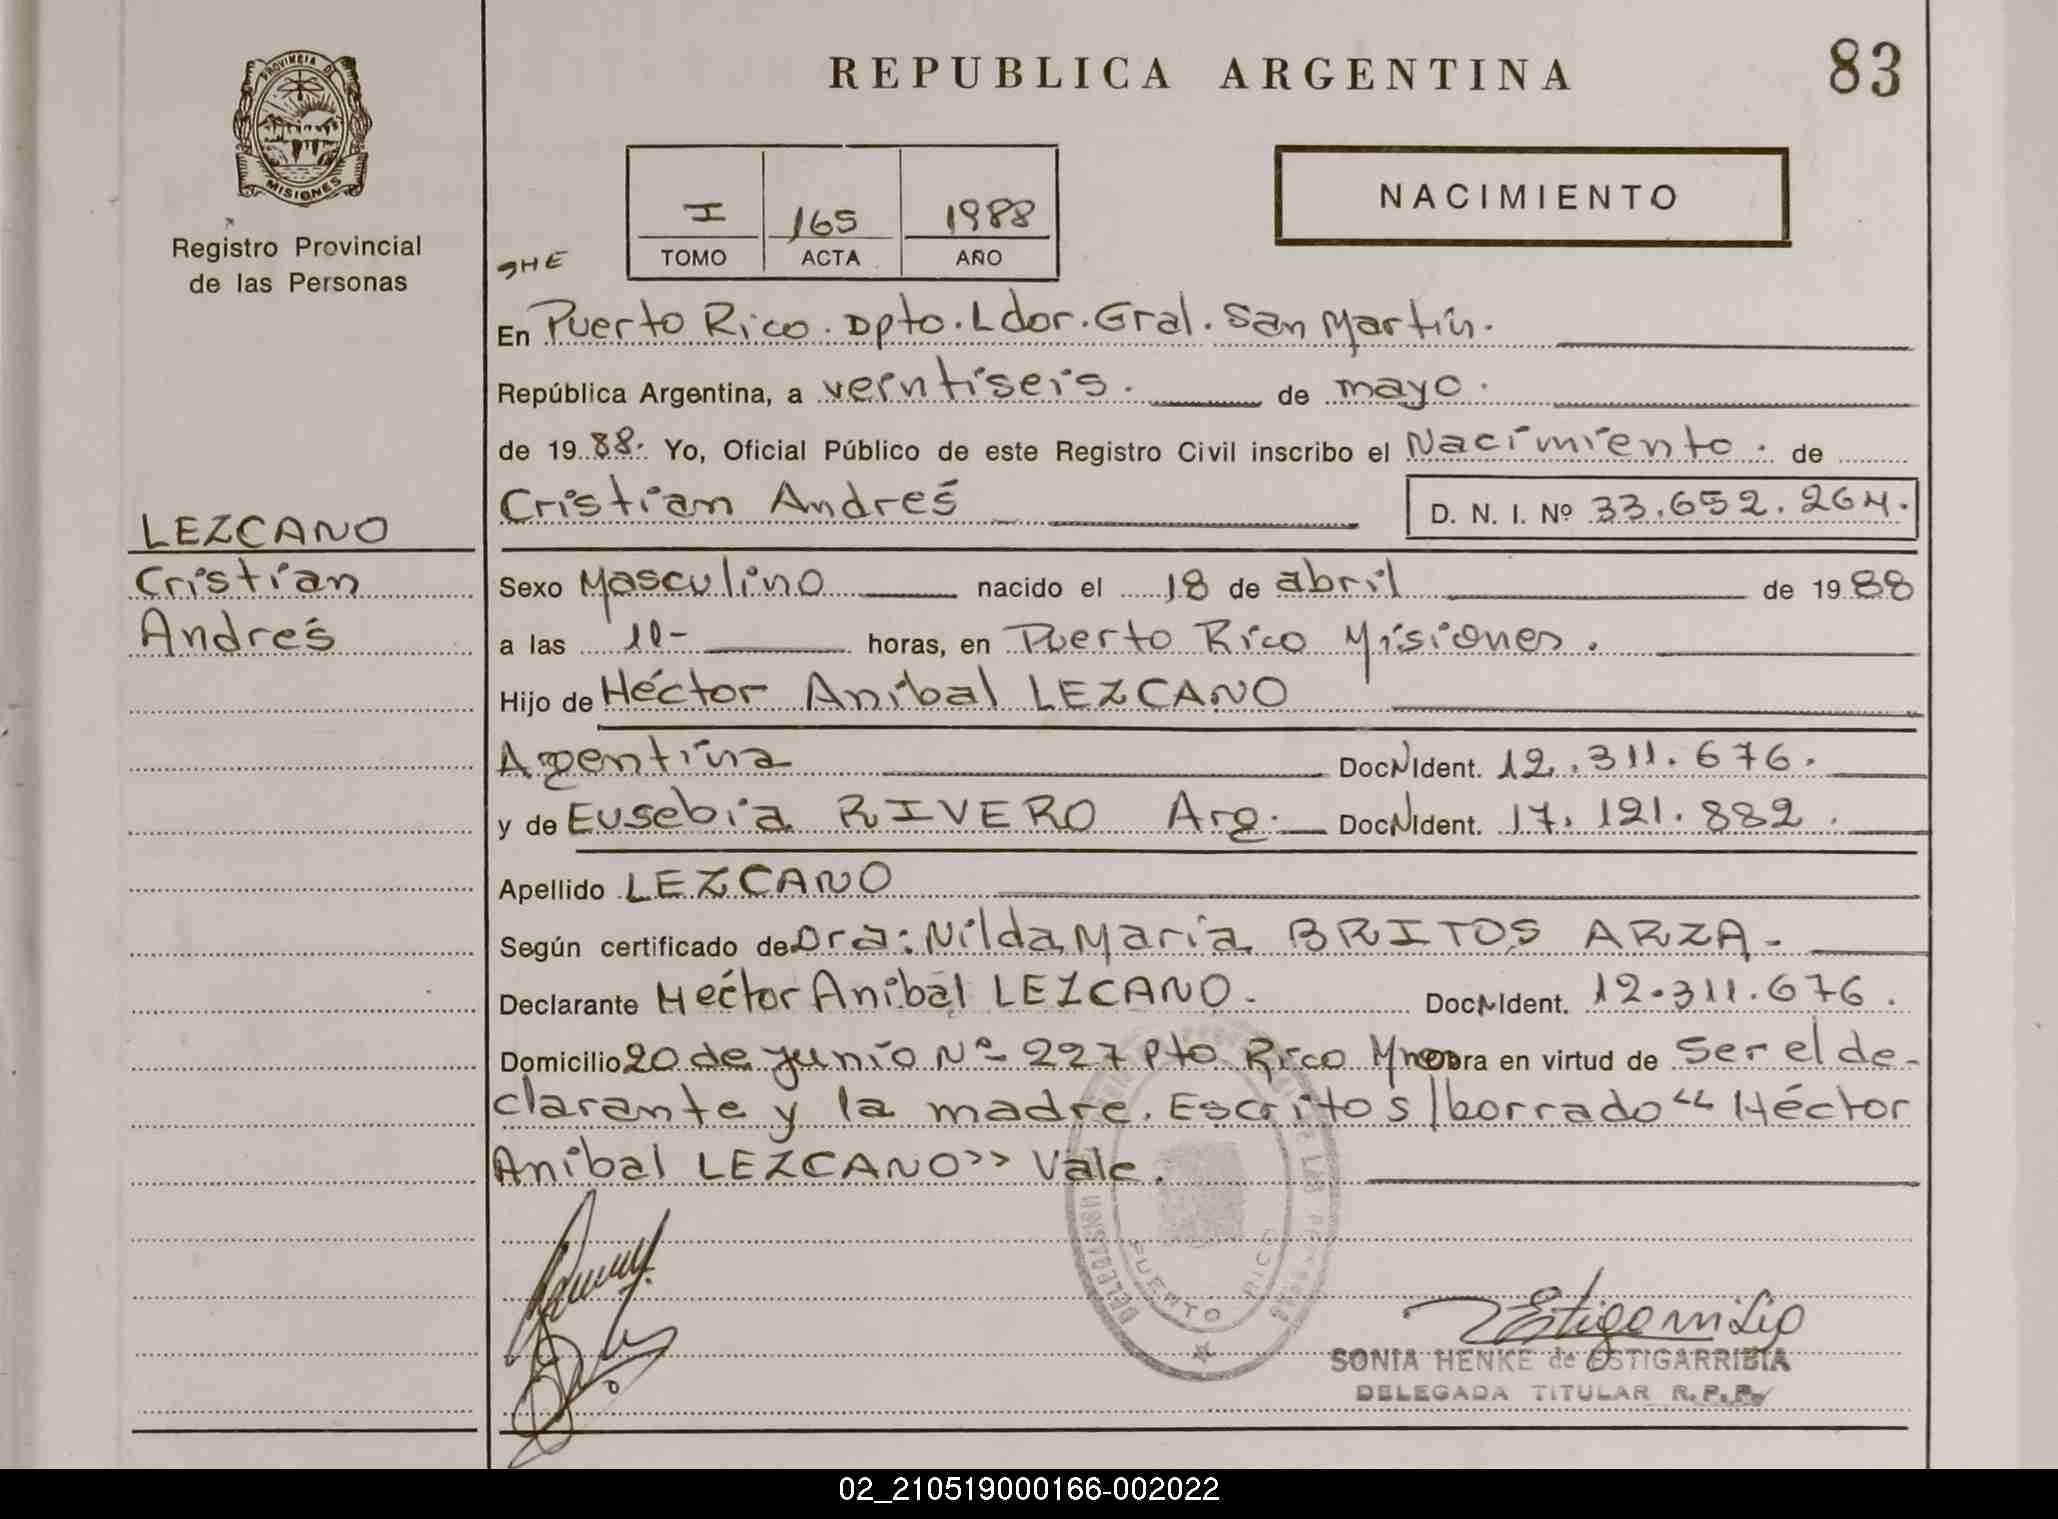 REPUBLICA ARGENTINA
83
PROVINCIA DE
MISIONES
Registro Provincial
de las Personas
I 165 1988
TOMO ACTA AÑO
NACIMIENTO
SHE
En Puerto Rico. Dpto. Ldor. Gral. San Martín.
República Argentina, a veintiseis. de mayo.
de 19 88. Yo, Oficial Público de este Registro Civil inscribo el Nacimiento. de
Cristian Andrés D. N. I. Nº 33.652.264.
LEZCANO
Cristian
Andrés
Sexo Masculino nacido el 18 de abril de 19 88
a las 10- horas, en Puerto Rico Misiones.
Hijo de Héctor Anibal LEZCANO
Agentina DocNIdent. 12.311.676.
y de Eusebia RIVERO Arg. DocNIdent. 17.121.882.
Apellido LEZCANO
Según certificado de Dra: Nilda María BRITOS ARZA.
Declarante Héctor Anibal LEZCANO. DocNIdent. 12.311.676.
Domicilio 20 de junio Nº 227 Pto Rico Mnes obra en virtud de Ser el de-
clarante y la madre. Escrito s/borrado "Héctor
Anibal LEZCANO" Vale.
PUERTO RICO
SONIA HENKE de ESTIGARRIBIA
DELEGADA TITULAR R.P.P.
02_210519000166-002022